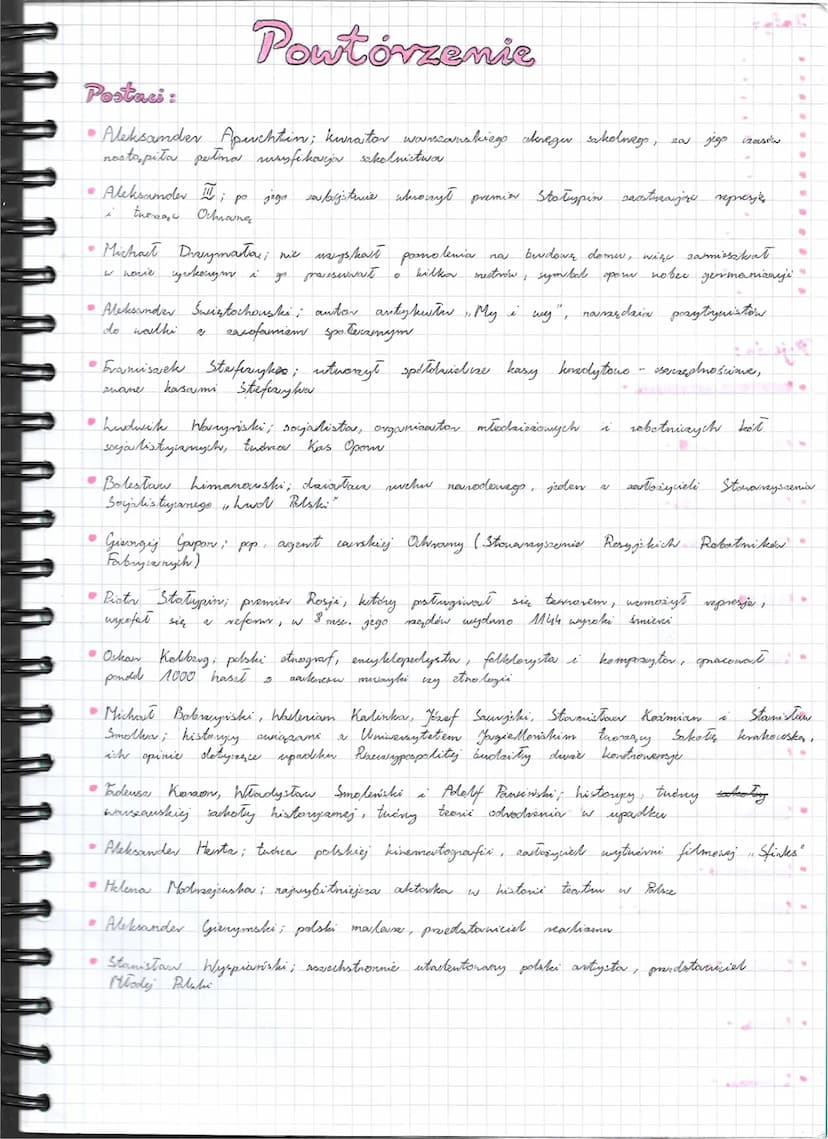 Powtórzenie
Postaci:
• Aleksander Apuchtin; kurator warszawskiego okręgu szkolnego, za jego czasów
nastąpiła pełna rusyfikacja szkolnictwa
• Aleksander III; po jego zabójstwie wkroczył premier Stołypin zaostrzając represje
i tworząc Ochranę
• Michał Drzymała; nie uzyskał pozwolenia na budowę domu, więc zamieszkał
w wozie cyrkowym i go przesuwał o kilka metrów, symbol oporu wobec germanizacji
• Aleksander Świętochowski; autor artykułu „My i wy", narzędzia pozytywistów
do walki z zacofaniem społecznym
• Franciszek Stefczyk; utworzył spółdzielcze kasy kredytowo - oszczędnościowe,
zwane kasami Stefczyka
• Ludwik Waryński; socjalista, organizator młodzieżowych i robotniczych kół
socjalistycznych, twórca Kas Oporu
• Bolesław Limanowski; działacz ruchu narodowego, jeden z założycieli Stowarzyszenia
Socjalistycznego „Lud Polski"
• Gieorgij Gapon; pop, agent carskiej Ochrany (Stowarzyszenie Rosyjskich Robotników
Fabrycznych)
• Piotr Stołypin; premier Rosji, który posługiwał się terrorem, wzmożył represje,
wycofał się z reform, w 8 msc. jego rządów wydano 1144 wyroki śmierci
• Oskar Kolberg; polski etnograf, encyklopedysta, folklorysta i kompozytor, opracował
ponad 1000 haseł z zakresu muzyki czy etnologii
• Michał Bobrzyński, Walerian Kalinka, Józef Szujski, Stanisław Koźmian i Stanisław
Smolka; historycy związani z Uniwersytetem Jagiellońskim tworzący Szkołę krakowską,
ich opinie dotyczące upadku Rzeczypospolitej budziły duże kontrowersje
• Tadeusz Korzon, Władysław Smoleński i Adolf Pawiński; historycy, twórcy szkoły
warszawskiej szkoły historycznej, twórcy teorii odrodzenia w upadku
• Aleksander Hertz; twórca polskiej kinematografii, założyciel wytwórni filmowej „Sfinks"
• Helena Modrzejewska; najwybitniejsza aktorka w historii teatru w Polsce
• Aleksander Gierymski; polski malarz, przedstawiciel realizmu
• Stanisław Wyspiański; wszechstronnie utalentowany polski artysta, przedstawiciel
Młodej Polski